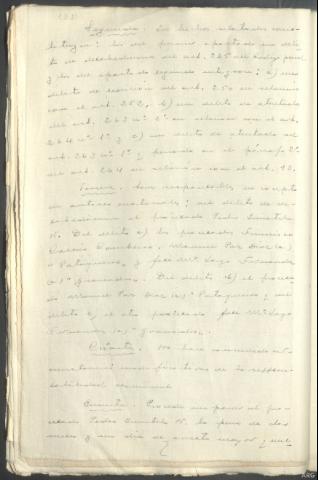 Segunda: Los hechos relatados cons-
tituyen: los del primer apartado un deli-
to de desobediencia del art. 265 del Código penal
y los del apartado segundo integran: a) un
delito de sedición del art. 250 en relación
con el art. 252, b) un delito de atentado
del art. 263 nº 2º en relación con el art.
264 nº 1º y c) un delito de atentado del
art. 263 nº 2º y penado en el párrafo 2º
del art. 264 en relación con el art. 13.
Tercera. Son responsables en concepto
de autores materiales: del delito de des-
obediencia el procesado Pedro
Del delito a) los procesados
Manuel Paz Díaz (a)
"Portugueses, y José Mª Lago Fernández
(a) Del delito b) el proce-
sado Manuel Paz Díaz (a) Portugueses; y del
delito c) el otro procesado José Mª Lago
Fernández (a)
Cuarta. No han concurrido cir-
cunstancias modificativas de la respon-
sabilidad criminal.
Quinta. Procede imponer al pro-
cesado Pedro la pena de dos
meses y un día de arresto mayor y mul-
ARG